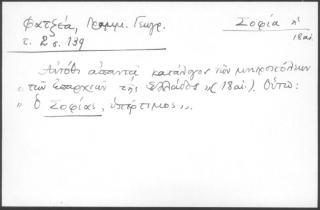 Φατζέα, Γραμμ. Γεωγρ.
τ. 2 σ. 139
Σοφία ἡ
18 αἰ.
Αὐτόθι ἀπαντᾷ κατάλογον τῶν μητροπόλεων
"τῶν ἐπαρχιῶν τῆς Ἑλλάδος" (18 αἰ.). Οὕτω:
"ὁ Σοφίας, ὑπέρτιμος".